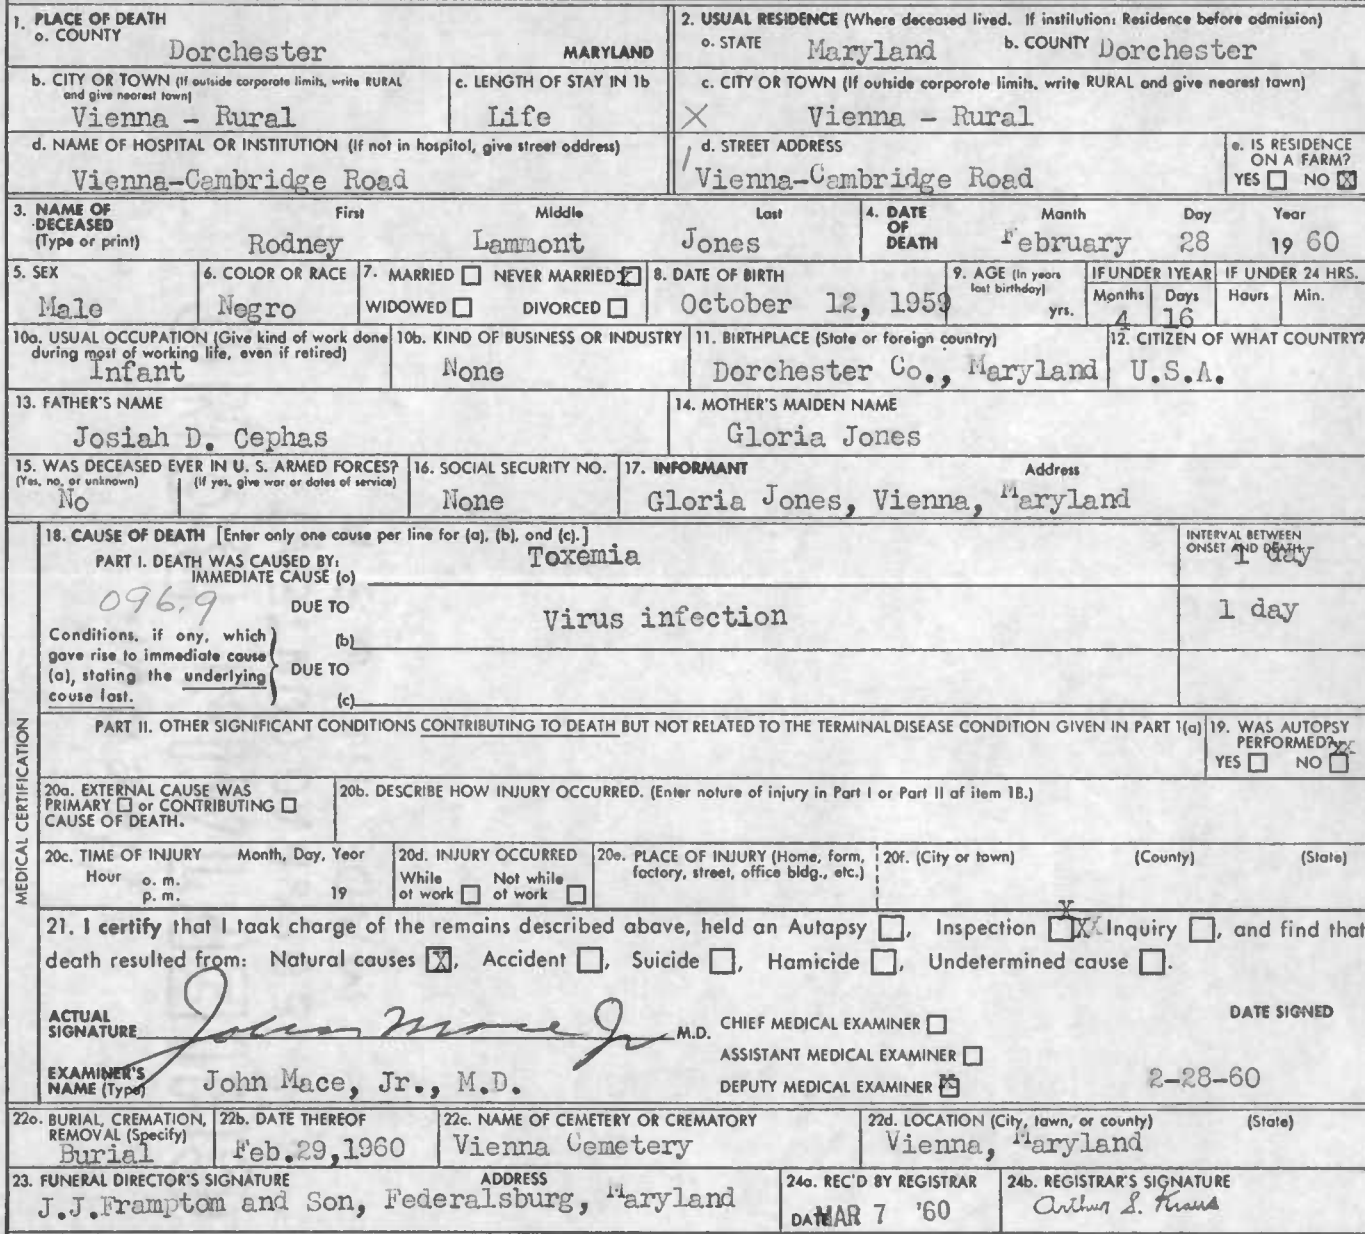 1. PLACE OF DEATH
a. COUNTY
Dorchester MARYLAND
2. USUAL RESIDENCE (Where deceased lived. If institution: Residence before admission)
a. STATE Maryland b. COUNTY Dorchester
b. CITY OR TOWN (If outside corporate limits, write RURAL and give nearest town)
Vienna - Rural
c. LENGTH OF STAY IN 1b
Life
c. CITY OR TOWN (If outside corporate limits, write RURAL and give nearest town)
X Vienna - Rural
d. NAME OF HOSPITAL OR INSTITUTION (If not in hospital, give street address)
Vienna-Cambridge Road
d. STREET ADDRESS
Vienna-Cambridge Road
e. IS RESIDENCE ON A FARM?
YES ☐ NO ☒
3. NAME OF DECEASED (Type or print)
First Middle Last
Rodney Lammont Jones
4. DATE OF DEATH
Month Day Year
February 28 19 60
5. SEX
Male
6. COLOR OR RACE
Negro
7. MARRIED ☐ NEVER MARRIED ☒
WIDOWED ☐ DIVORCED ☐
8. DATE OF BIRTH
October 12, 1959
9. AGE (In years last birthday)
yrs.
IF UNDER 1 YEAR
Months Days
4 16
IF UNDER 24 HRS.
Hours Min.
10a. USUAL OCCUPATION (Give kind of work done during most of working life, even if retired)
Infant
10b. KIND OF BUSINESS OR INDUSTRY
None
11. BIRTHPLACE (State or foreign country)
Dorchester Co., Maryland
12. CITIZEN OF WHAT COUNTRY?
U.S.A.
13. FATHER'S NAME
Josiah D. Cephas
14. MOTHER'S MAIDEN NAME
Gloria Jones
15. WAS DECEASED EVER IN U. S. ARMED FORCES?
(Yes, no, or unknown) (If yes, give war or dates of service)
No
16. SOCIAL SECURITY NO.
None
17. INFORMANT Address
Gloria Jones, Vienna, Maryland
MEDICAL CERTIFICATION
18. CAUSE OF DEATH [Enter only one cause per line for (a), (b), and (c).]
PART I. DEATH WAS CAUSED BY:
IMMEDIATE CAUSE (a) Toxemia
INTERVAL BETWEEN ONSET AND DEATH
1 day
096.9
DUE TO
(b) Virus infection
1 day
Conditions, if any, which gave rise to immediate cause (a), stating the underlying cause last.
DUE TO
(c)
PART II. OTHER SIGNIFICANT CONDITIONS CONTRIBUTING TO DEATH BUT NOT RELATED TO THE TERMINAL DISEASE CONDITION GIVEN IN PART 1(a)
19. WAS AUTOPSY PERFORMED?
YES ☐ NO ☐ XX
20a. EXTERNAL CAUSE WAS
PRIMARY ☐ or CONTRIBUTING ☐
CAUSE OF DEATH.
20b. DESCRIBE HOW INJURY OCCURRED. (Enter nature of injury in Part I or Part II of item 18.)
20c. TIME OF INJURY Month, Day, Year
Hour a. m.
p. m. 19
20d. INJURY OCCURRED
While at work ☐ Not while at work ☐
20e. PLACE OF INJURY (Home, farm, factory, street, office bldg., etc.)
20f. (City or town) (County) (State)
21. I certify that I took charge of the remains described above, held an Autopsy ☐, Inspection ☒ Inquiry ☐, and find that
death resulted from: Natural causes ☒, Accident ☐, Suicide ☐, Homicide ☐, Undetermined cause ☐.
ACTUAL SIGNATURE John Mace Jr M.D.
CHIEF MEDICAL EXAMINER ☐
ASSISTANT MEDICAL EXAMINER ☐
DEPUTY MEDICAL EXAMINER ☒
DATE SIGNED
2-28-60
EXAMINER'S NAME (Type) John Mace, Jr., M.D.
22a. BURIAL, CREMATION, REMOVAL (Specify)
Burial
22b. DATE THEREOF
Feb.29,1960
22c. NAME OF CEMETERY OR CREMATORY
Vienna Cemetery
22d. LOCATION (City, town, or county) (State)
Vienna, Maryland
23. FUNERAL DIRECTOR'S SIGNATURE ADDRESS
J.J.Framptom and Son, Federalsburg, Maryland
24a. REC'D BY REGISTRAR
DATE MAR 7 '60
24b. REGISTRAR'S SIGNATURE
Arthur S. Kraus